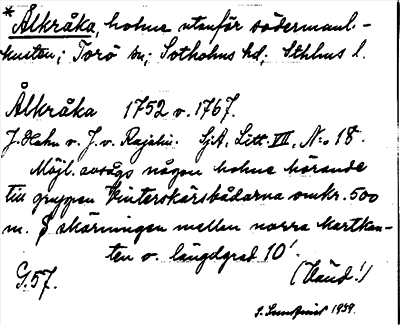 * Ålkråka, holme utanför södermanl.-
kusten; Torö sn; Sotholms hd; Sthlms l.
Ålkråka 1752 o. 1767.
J. Hahn o. J. v. Rajalin. SjA, Litt. VII, N:o 18.
Möjl. avsågs någon holme hörande
till gruppen Vinterskärsbådarna omkr. 500
m. S skärningen mellen norra kartkan-
ten o. längdgrad 10'.
G.57.
(Vänd!)
1939.